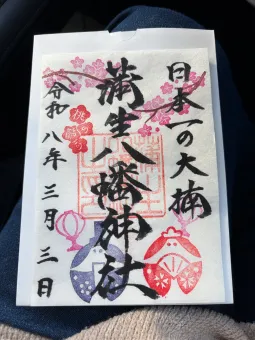 日本一の大楠
蒲生八幡神社
令和八年三月三日
桃の節句